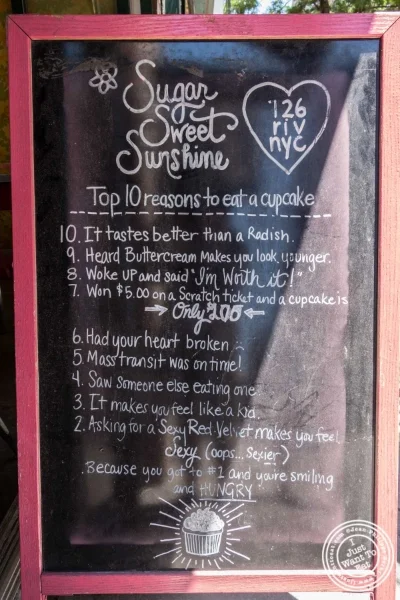 Sugar
Sweet
Sunshine
126
riv
nyc
Top 10 reasons to eat a cupcake
10. It tastes better than a Radish.
9. Heard Buttercream makes you look younger.
8. Woke up and said "I'm Worth it!"
7. Won $5.00 on a Scratch ticket and a cupcake is
Only
6. Had your heart broken
5. Mass transit was on time!
4. Saw someone else eating one
3. It makes you feel like a kid.
2. Asking for a Sexy Red Velvet makes you feel
Sexy (oops... Sexier)
. Because you got to #1 and you're smiling
and HUNGRY
I
Just
Want To
Eat